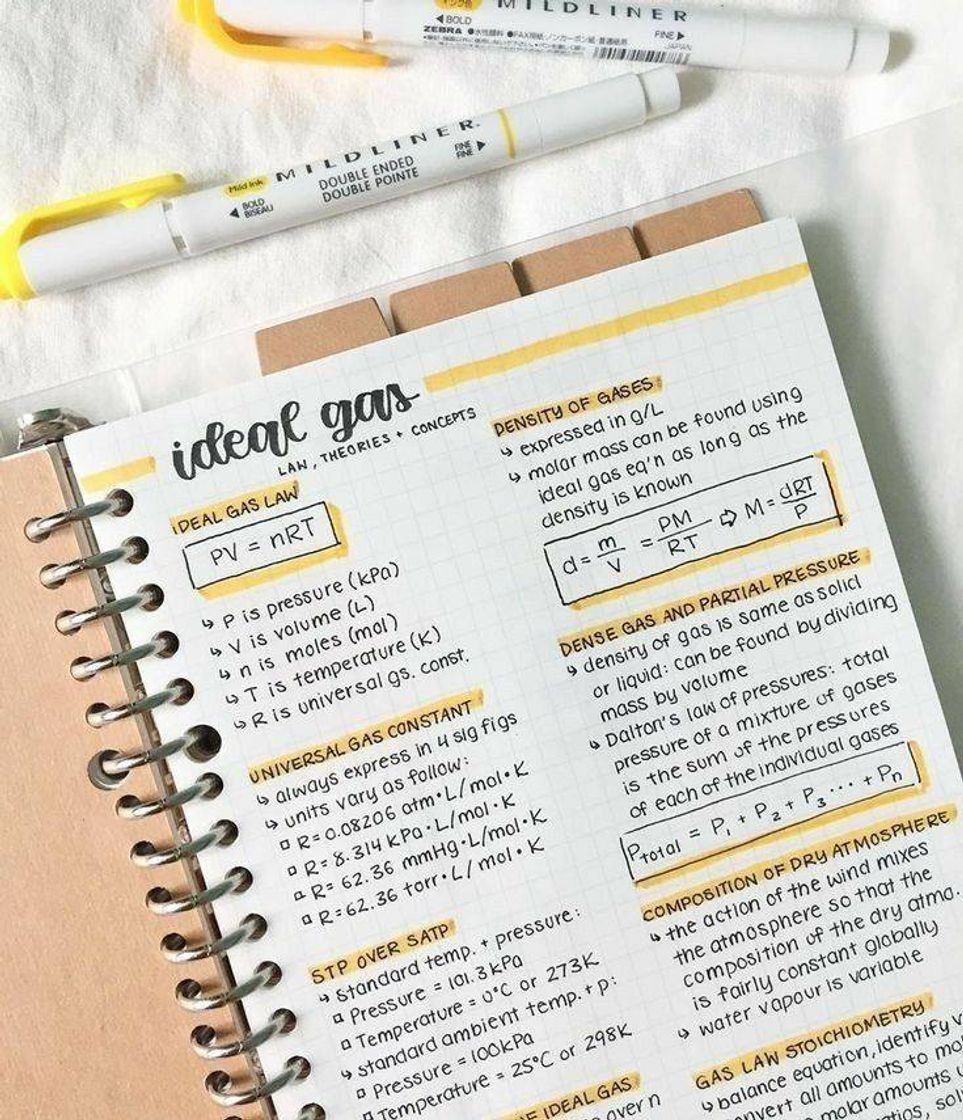 MILDLINER
BOLD
FINE
ZEBRA ●水性顔料 ●PPC用紙・ノンカーボン紙・普通紙用
JAPAN
Mild ink MILDLINER.
DOUBLE ENDED
DOUBLE POINTE
BOLD
BISEAU
FINE
FINE
ideal gas
LAW, THEORIES + CONCEPTS
IDEAL GAS LAW
PV = nRT
↳ P is pressure (kPa)
↳ V is volume (L)
↳ n is moles (mol)
↳ T is temperature (K)
↳ R is universal gs. const.
UNIVERSAL GAS CONSTANT
↳ always express in 4 sig figs
↳ units vary as follow:
▫ R= 0.08206 atm•L/mol•K
▫ R= 8.314 kPa•L/mol•K
▫ R= 62.36 mmHg•L/mol•K
▫ R= 62.36 torr•L/mol•K
STP OVER SATP
↳ standard temp. + pressure:
▫ Pressure = 101.3 kPa
▫ Temperature = 0°C or 273K
↳ standard ambient temp. + p:
▫ Pressure = 100kPa
▫ Temperature = 25°C or 298K
IDEAL GAS
over n
DENSITY OF GASES
↳ expressed in g/L
↳ molar mass can be found using
ideal gas eq'n as long as the
density is known
d = m/V = PM/RT ⇨ M = dRT/P
DENSE GAS AND PARTIAL PRESSURE
↳ density of gas is same as solid
or liquid: can be found by dividing
mass by volume
↳ Dalton's law of pressures: total
pressure of a mixture of gases
is the sum of the pressures
of each of the individual gases
Ptotal = P₁ + P₂ + P₃ ... + Pn
COMPOSITION OF DRY ATMOSPHERE
↳ the action of the wind mixes
the atmosphere so that the
composition of the dry atmo.
is fairly constant globally
↳ water vapour is variable
GAS LAW STOICHIOMETRY
↳ balance equation, identify
all amounts to
molar amounts